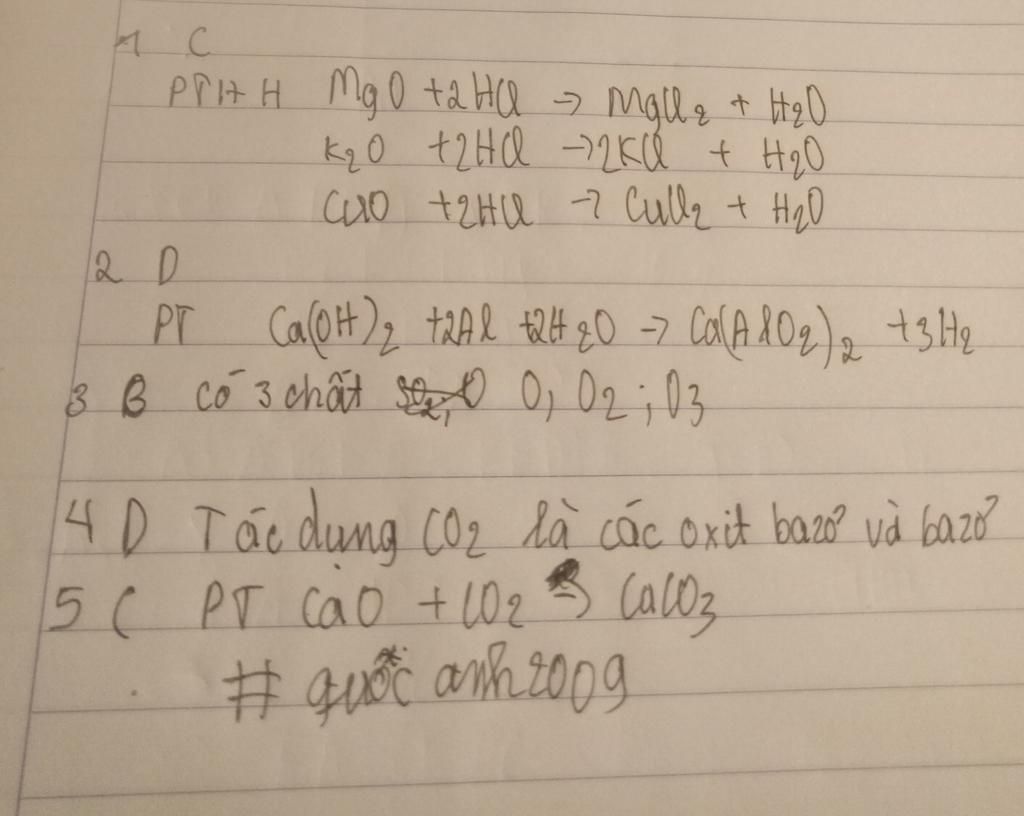 1 C
PTHH MgO +2HCl → MgCl2 + H2O
K2O +2HCl → 2KCl + H2O
CuO +2HCl → CuCl2 + H2O
2 D
PT Ca(OH)2 +2Al +2H2O → Ca(AlO2)2 +3H2
3 B có 3 chất O, O2 ; O3
4 D Tác dụng CO2 là các oxit bazơ và bazơ
5 C PT CaO + CO2 → CaCO3
# quốc anh2009